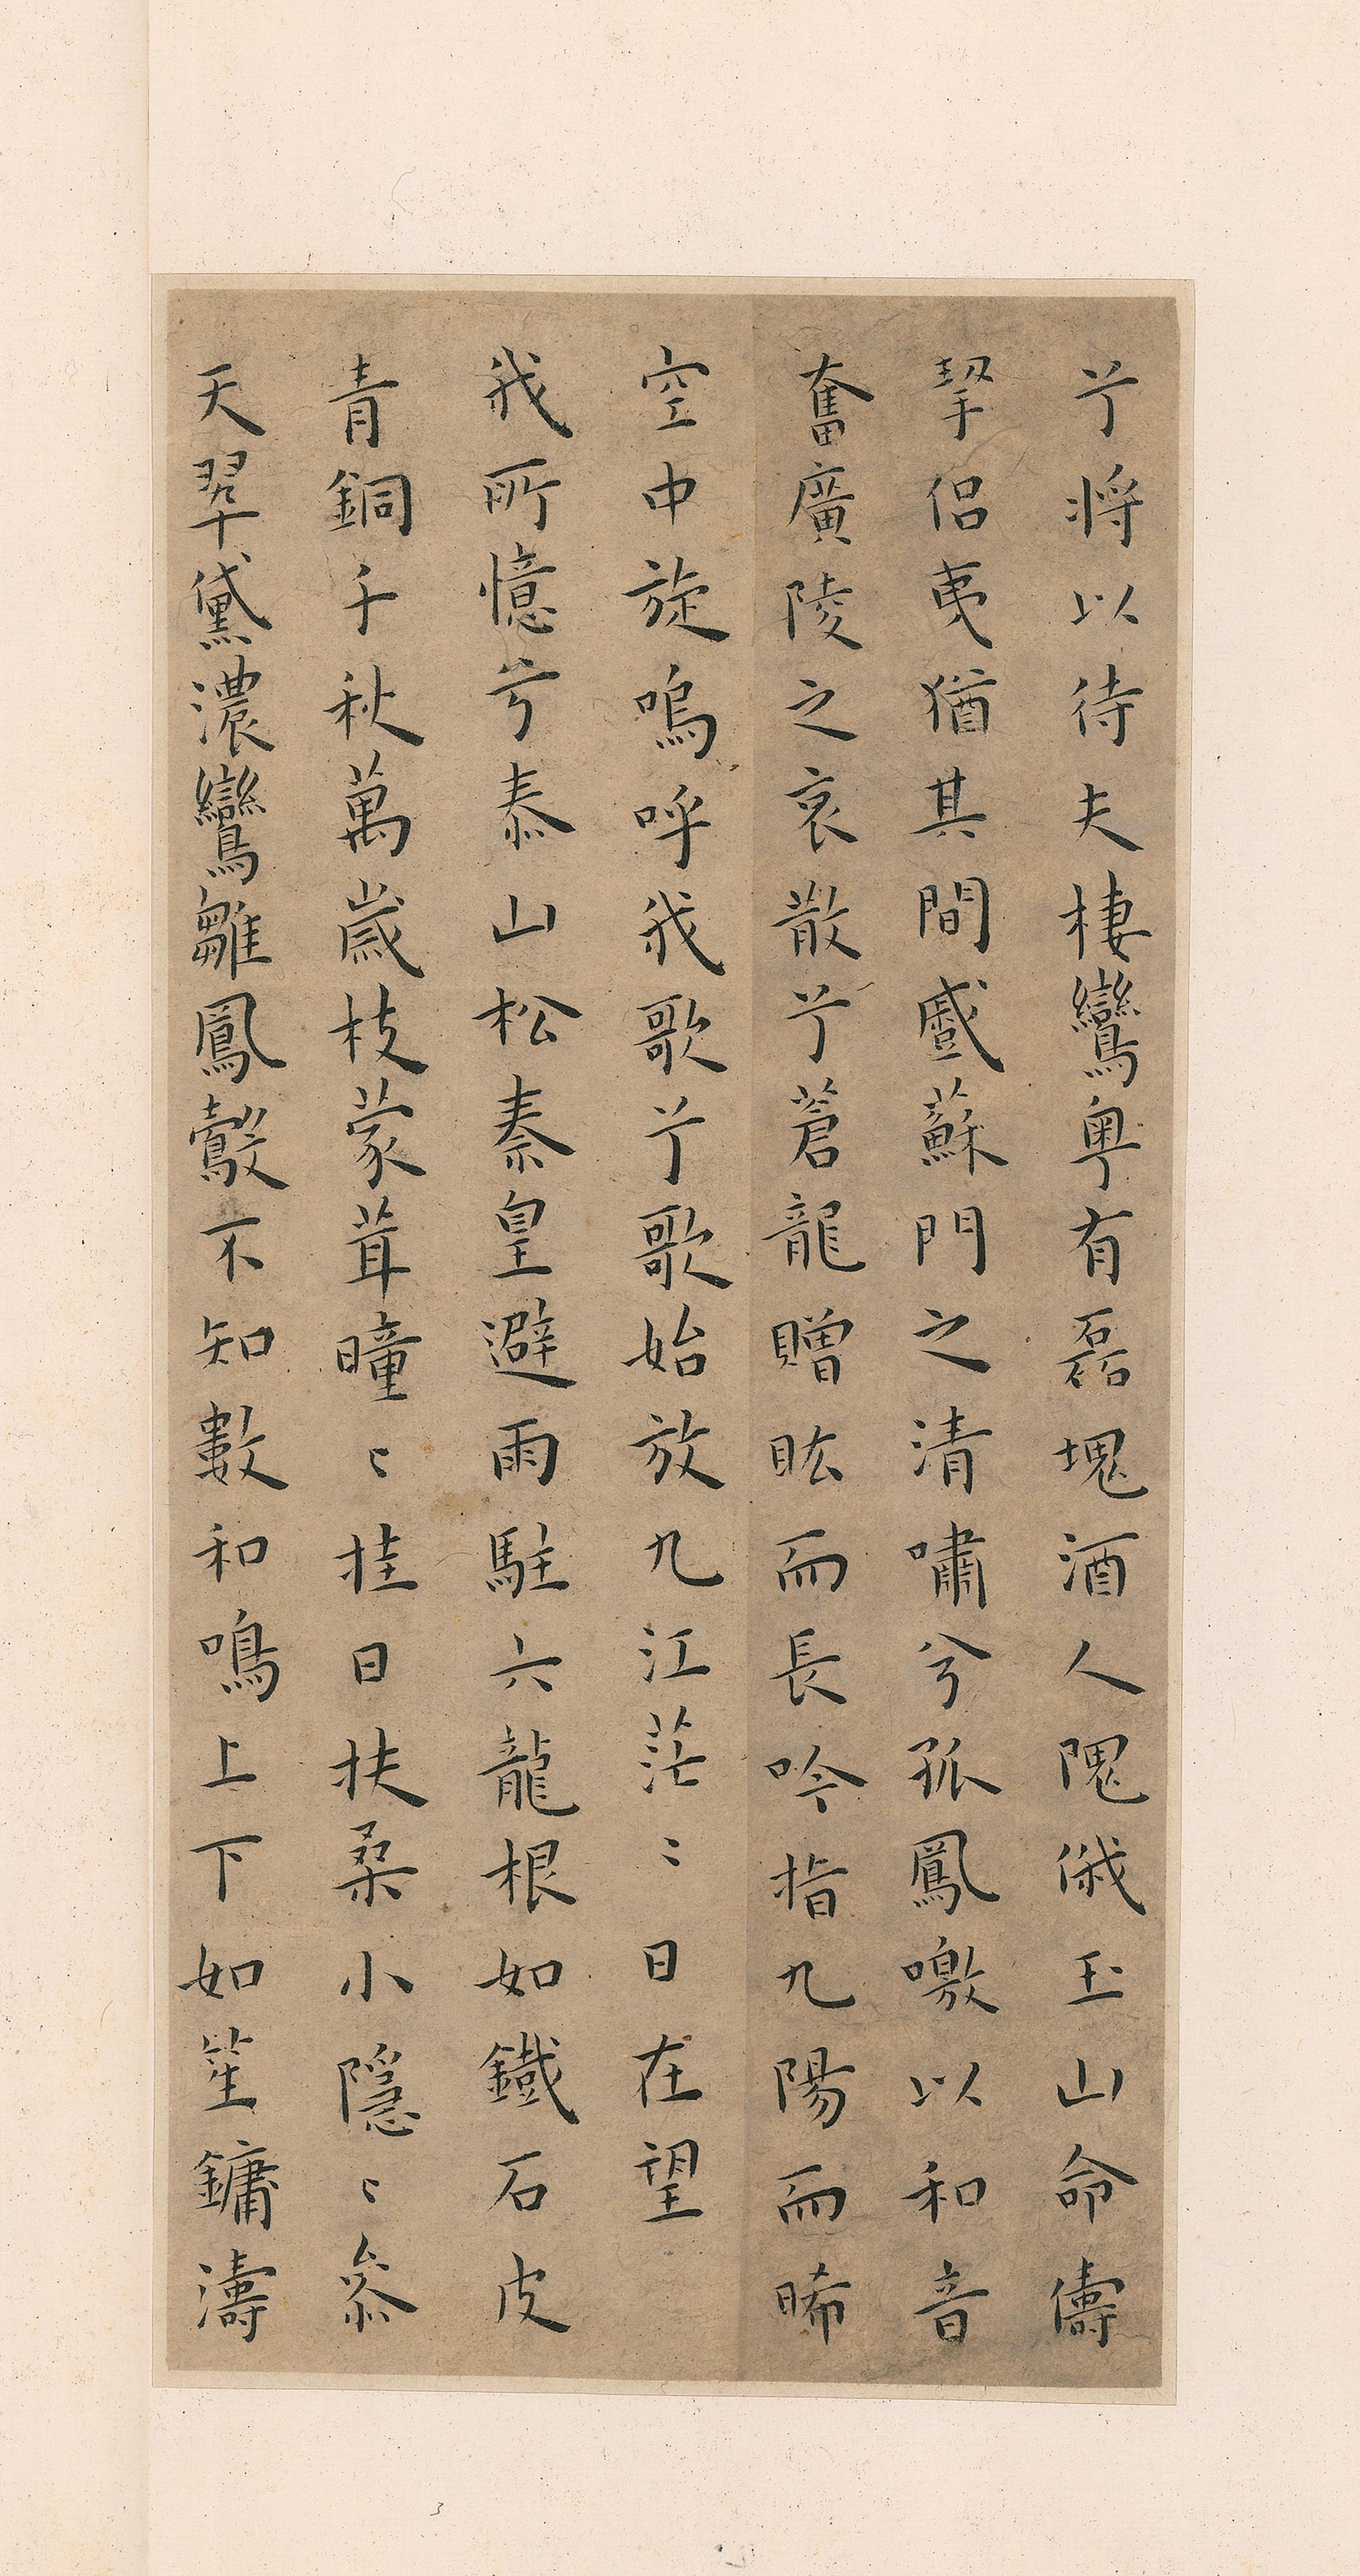 兮將以待夫棲鸞粵有磊塊酒人隗俄玉山命儔
挈侶夷猶其間感蘇門之清嘯兮孤鳳噭以和音
奮廣陵之哀散兮蒼龍矰眩而長吟指九陽而晞
空中旋嗚呼我歌兮歌始放九江茫〻日在望
我所憶兮泰山松秦皇避雨駐六龍根如鐵石皮
青銅千秋萬歲枝蒙茸曈〻挂日扶桑小隱〻參
天翠黛濃鸞雛鳳鷇不知數和鳴上下如笙鏞濤